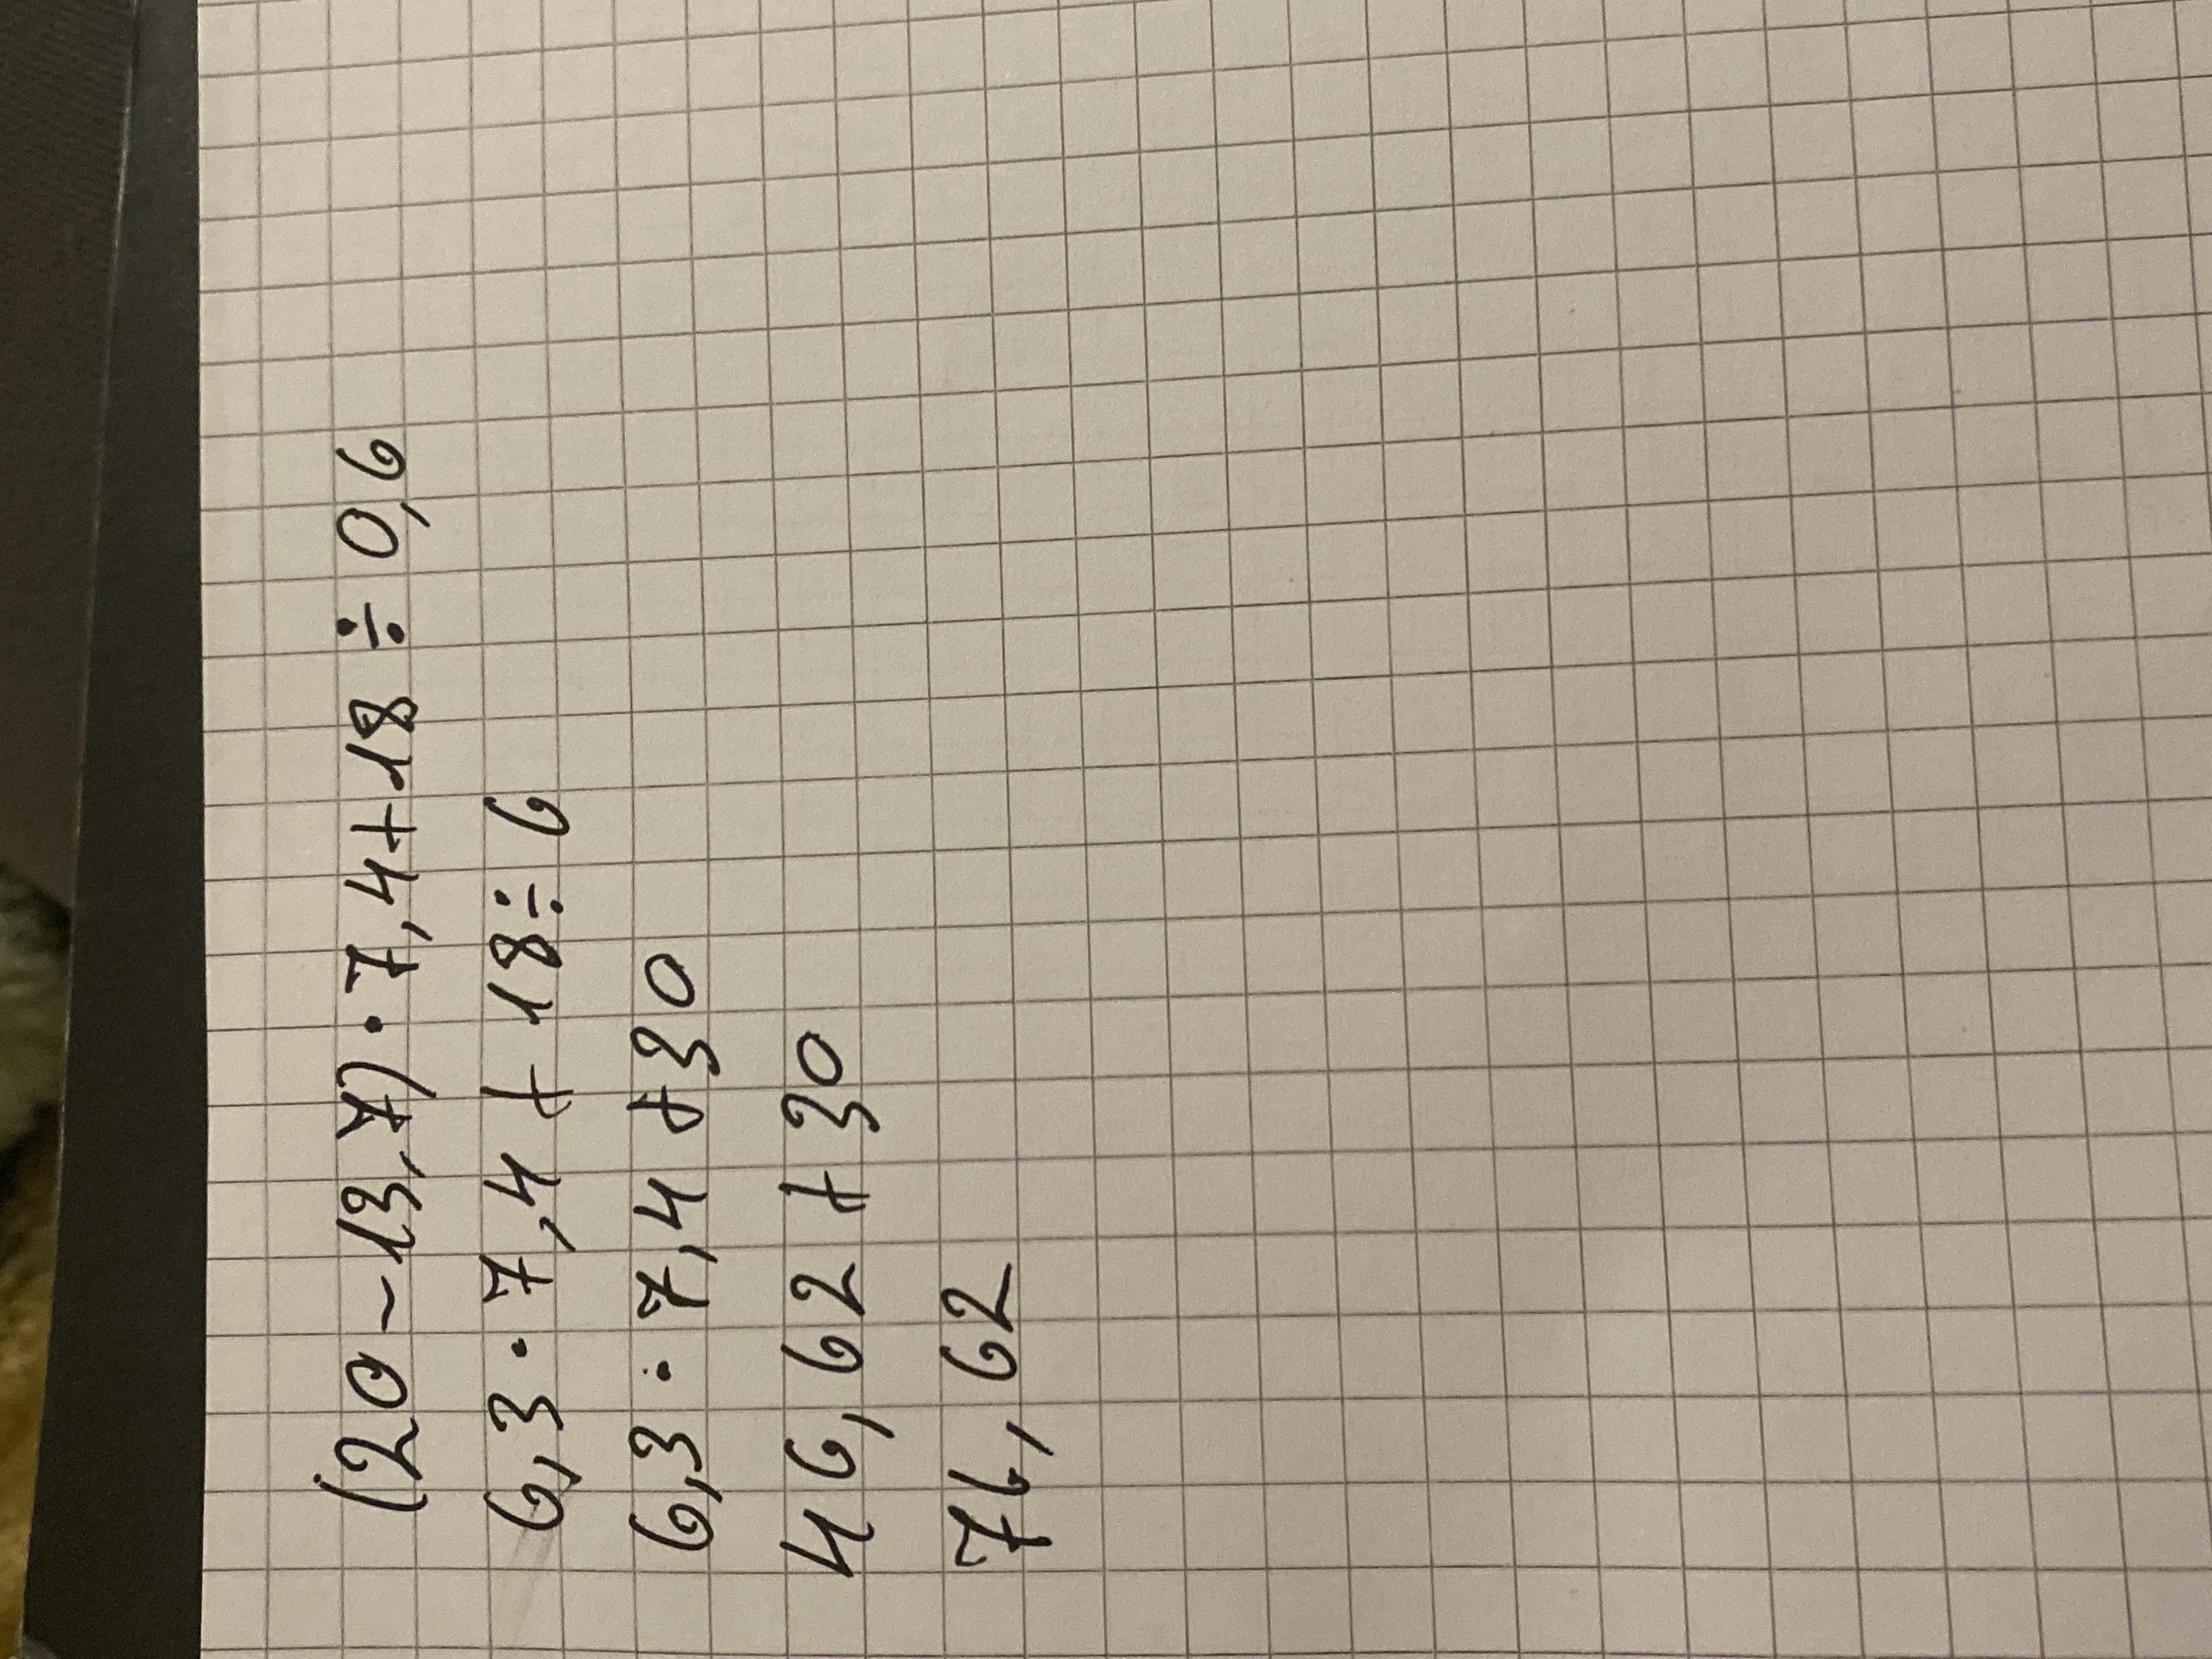 (20-13,7)·7,4+18÷0,6
6,3·7,4+18÷6
6,3·7,4+30
46,62+30
76,62